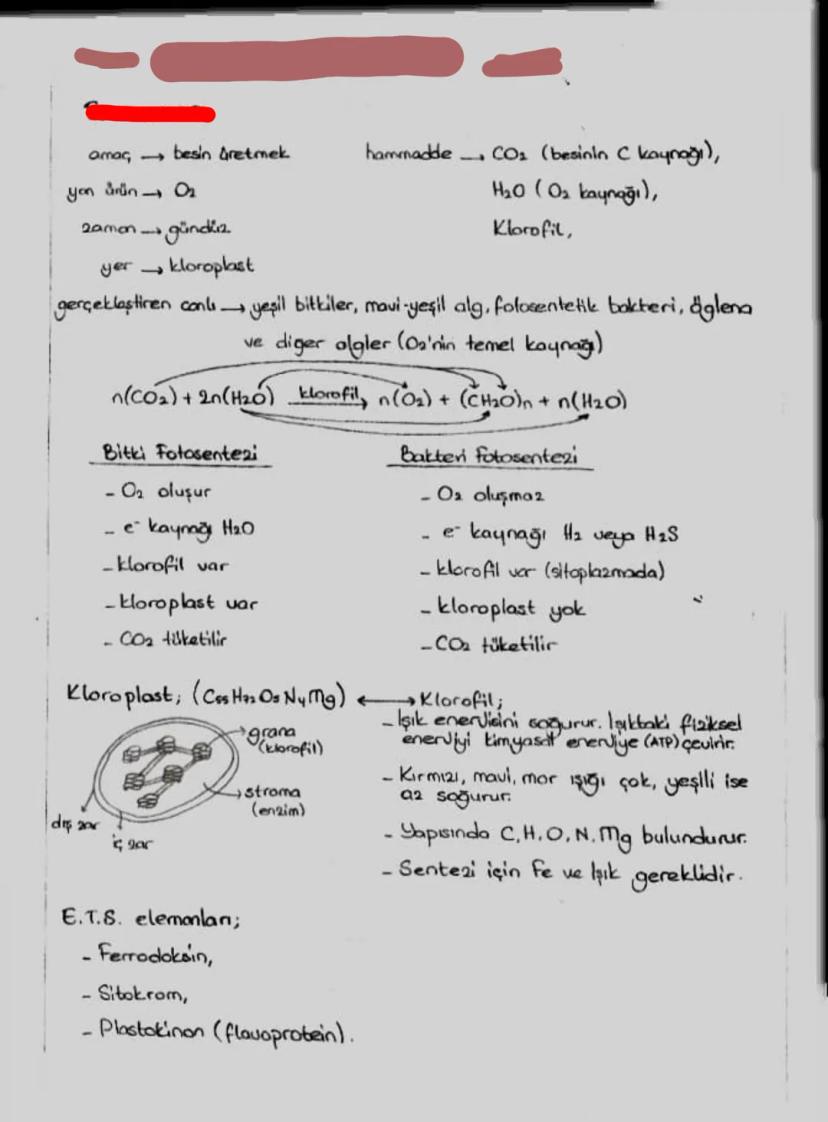 amaç → besin üretmek
hammadde → CO₂ (besinin C kaynağı),
yan ürün → O₂
H₂O (O₂ kaynağı),
zaman → gündüz
Klorofil,
yer → kloroplast
gerçekleştiren canlı → yeşil bitkiler, mavi-yeşil alg, fotosentetik bakteri, öglena
ve diğer algler (O₂'nin temel kaynağı)
n(CO₂) + 2n(H₂O) klorofil → n(O₂) + (CH₂O)n + n(H₂O)
Bitki Fotosentezi
- O₂ oluşur
- e⁻ kaynağı H₂O
- klorofil var
- kloroplast var
- CO₂ tüketilir
Bakteri Fotosentezi
- O₂ oluşmaz
- e⁻ kaynağı H₂ veya H₂S
- klorofil var (sitoplazmada)
- kloroplast yok
- CO₂ tüketilir
Kloroplast; (C₅₅H₇₂O₅N₄Mg) ⟷ Klorofil;
grana
(klorofil)
stroma
(enzim)
dış zar
iç zar
- Işık enerjisini soğurur. Işıktaki fiziksel
enerjiyi kimyasal enerjiye (ATP) çevirir.
- Kırmızı, mavi, mor ışığı çok, yeşili ise
az soğurur.
- Yapısında C, H, O, N, Mg bulundurur.
- Sentezi için Fe ve Işık gereklidir.
E.T.S. elemanları;
- Ferrodoksin,
- Sitokrom,
- Plastokinon (flavoprotein).